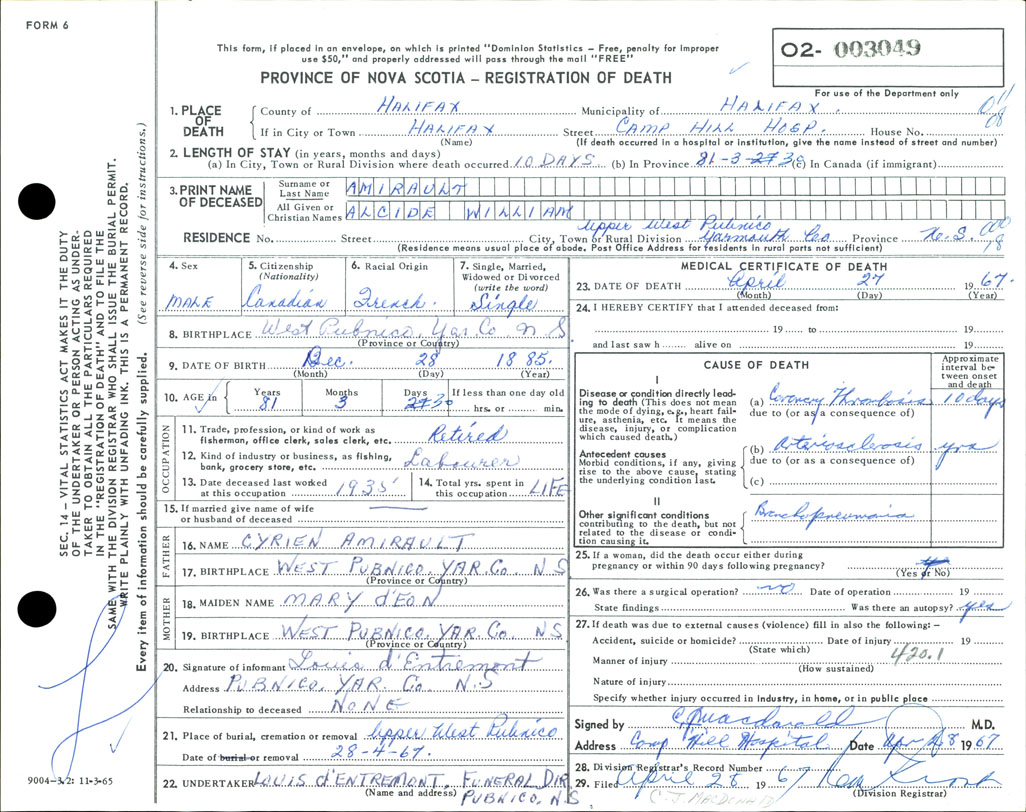 FORM 6
This form, if placed in an envelope, on which is printed "Dominion Statistics – Free, penalty for improper
use $50," and properly addressed will pass through the mail "FREE"
PROVINCE OF NOVA SCOTIA – REGISTRATION OF DEATH
02- 003049
For use of the Department only
SEC. 14 – VITAL STATISTICS ACT MAKES IT THE DUTY
OF THE UNDERTAKER OR PERSON ACTING AS UNDER-
TAKER TO OBTAIN ALL THE PARTICULARS REQUIRED
IN THE "REGISTRATION OF DEATH" AND TO FILE THE
SAME WITH THE DIVISION REGISTRAR WHO SHALL ISSUE THE BURIAL PERMIT.
WRITE PLAINLY WITH UNFADING INK. THIS IS A PERMANENT RECORD.
Every item of information should be carefully supplied. (See reverse side for instructions.)
1. PLACE OF DEATH
County of HALIFAX Municipality of HALIFAX. 011
If in City or Town HALIFAX Street CAMP HILL HOSP. House No. 08
(Name) (If death occurred in a hospital or institution, give the name instead of street and number)
2. LENGTH OF STAY (in years, months and days)
(a) In City, Town or Rural Division where death occurred 10 DAYS (b) In Province 81-3-27 30 (c) In Canada (if immigrant)
3. PRINT NAME OF DECEASED
Surname or Last Name AMIRAULT
All Given or Christian Names ALCIDE WILLIAM
Upper West Pubnico 000
RESIDENCE No. Street City, Town or Rural Division Yarmouth Co. Province N.S. 18
(Residence means usual place of abode. Post Office Address for residents in rural parts not sufficient)
4. Sex
MALE
5. Citizenship
(Nationality)
Canadian
6. Racial Origin
French.
7. Single, Married,
Widowed or Divorced
(write the word)
Single
8. BIRTHPLACE West Pubnico, Yar. Co N S
(Province or Country)
9. DATE OF BIRTH Dec. 28 1885.
(Month) (Day) (Year)
10. AGE in Years 81 Months 3 Days 27 30 If less than one day old
hrs. or min.
OCCUPATION
11. Trade, profession, or kind of work as
fisherman, office clerk, sales clerk, etc. Retired
12. Kind of industry or business, as fishing,
bank, grocery store, etc. Labourer
13. Date deceased last worked
at this occupation 1935
14. Total yrs. spent in
this occupation LIFE
15. If married give name of wife
or husband of deceased
FATHER
16. NAME CYRIEN AMIRAULT
17. BIRTHPLACE WEST PUBNICO, YAR. Co. N S
(Province or Country)
MOTHER
18. MAIDEN NAME MARY d'EON
19. BIRTHPLACE WEST PUBNICO, YAR. Co. N S
(Province or Country)
20. Signature of informant Louis d'Entremont
Address PUBNICO, YAR. Co. N.S
Relationship to deceased NONE
21. Place of burial, cremation or removal Upper West Pubnico
Date of burial or removal 28-4-67.
22. UNDERTAKER LOUIS d'ENTREMONT, FUNERAL DIR
(Name and address) PUBNICO, N S
9004-3.2: 11-3-65
MEDICAL CERTIFICATE OF DEATH
23. DATE OF DEATH April 27 1967.
(Month) (Day) (Year)
24. I HEREBY CERTIFY that I attended deceased from:
19 to 19
and last saw h alive on 19
CAUSE OF DEATH
Approximate interval between onset and death
I
Disease or condition directly lead-
ing to death (This does not mean
the mode of dying, e.g., heart fail-
ure, asthenia, etc. It means the
disease, injury, or complication
which caused death.)
(a) Coronary Thrombosis 10 days
due to (or as a consequence of)
Antecedent causes
Morbid conditions, if any, giving
rise to the above cause, stating
the underlying condition last.
(b) Arteriosclerosis yrs
due to (or as a consequence of)
(c)
II
Other significant conditions
contributing to the death, but not
related to the disease or condi-
tion causing it.
Bronchopneumonia
25. If a woman, did the death occur either during
pregnancy or within 90 days following pregnancy?
(Yes or No)
26. Was there a surgical operation? no Date of operation 19
State findings Was there an autopsy? yes
27. If death was due to external causes (violence) fill in also the following: –
Accident, suicide or homicide? Date of injury 19
(State which) 420.1
Manner of injury
(How sustained)
Nature of injury
Specify whether injury occurred in Industry, in home, or in public place
Signed by C J Macdonald M.D.
Address Camp Hill Hospital Date Apr 28 1967
28. Division Registrar's Record Number
29. Filed April 28 1967
(Division Registrar)
C. J. MACDONALD